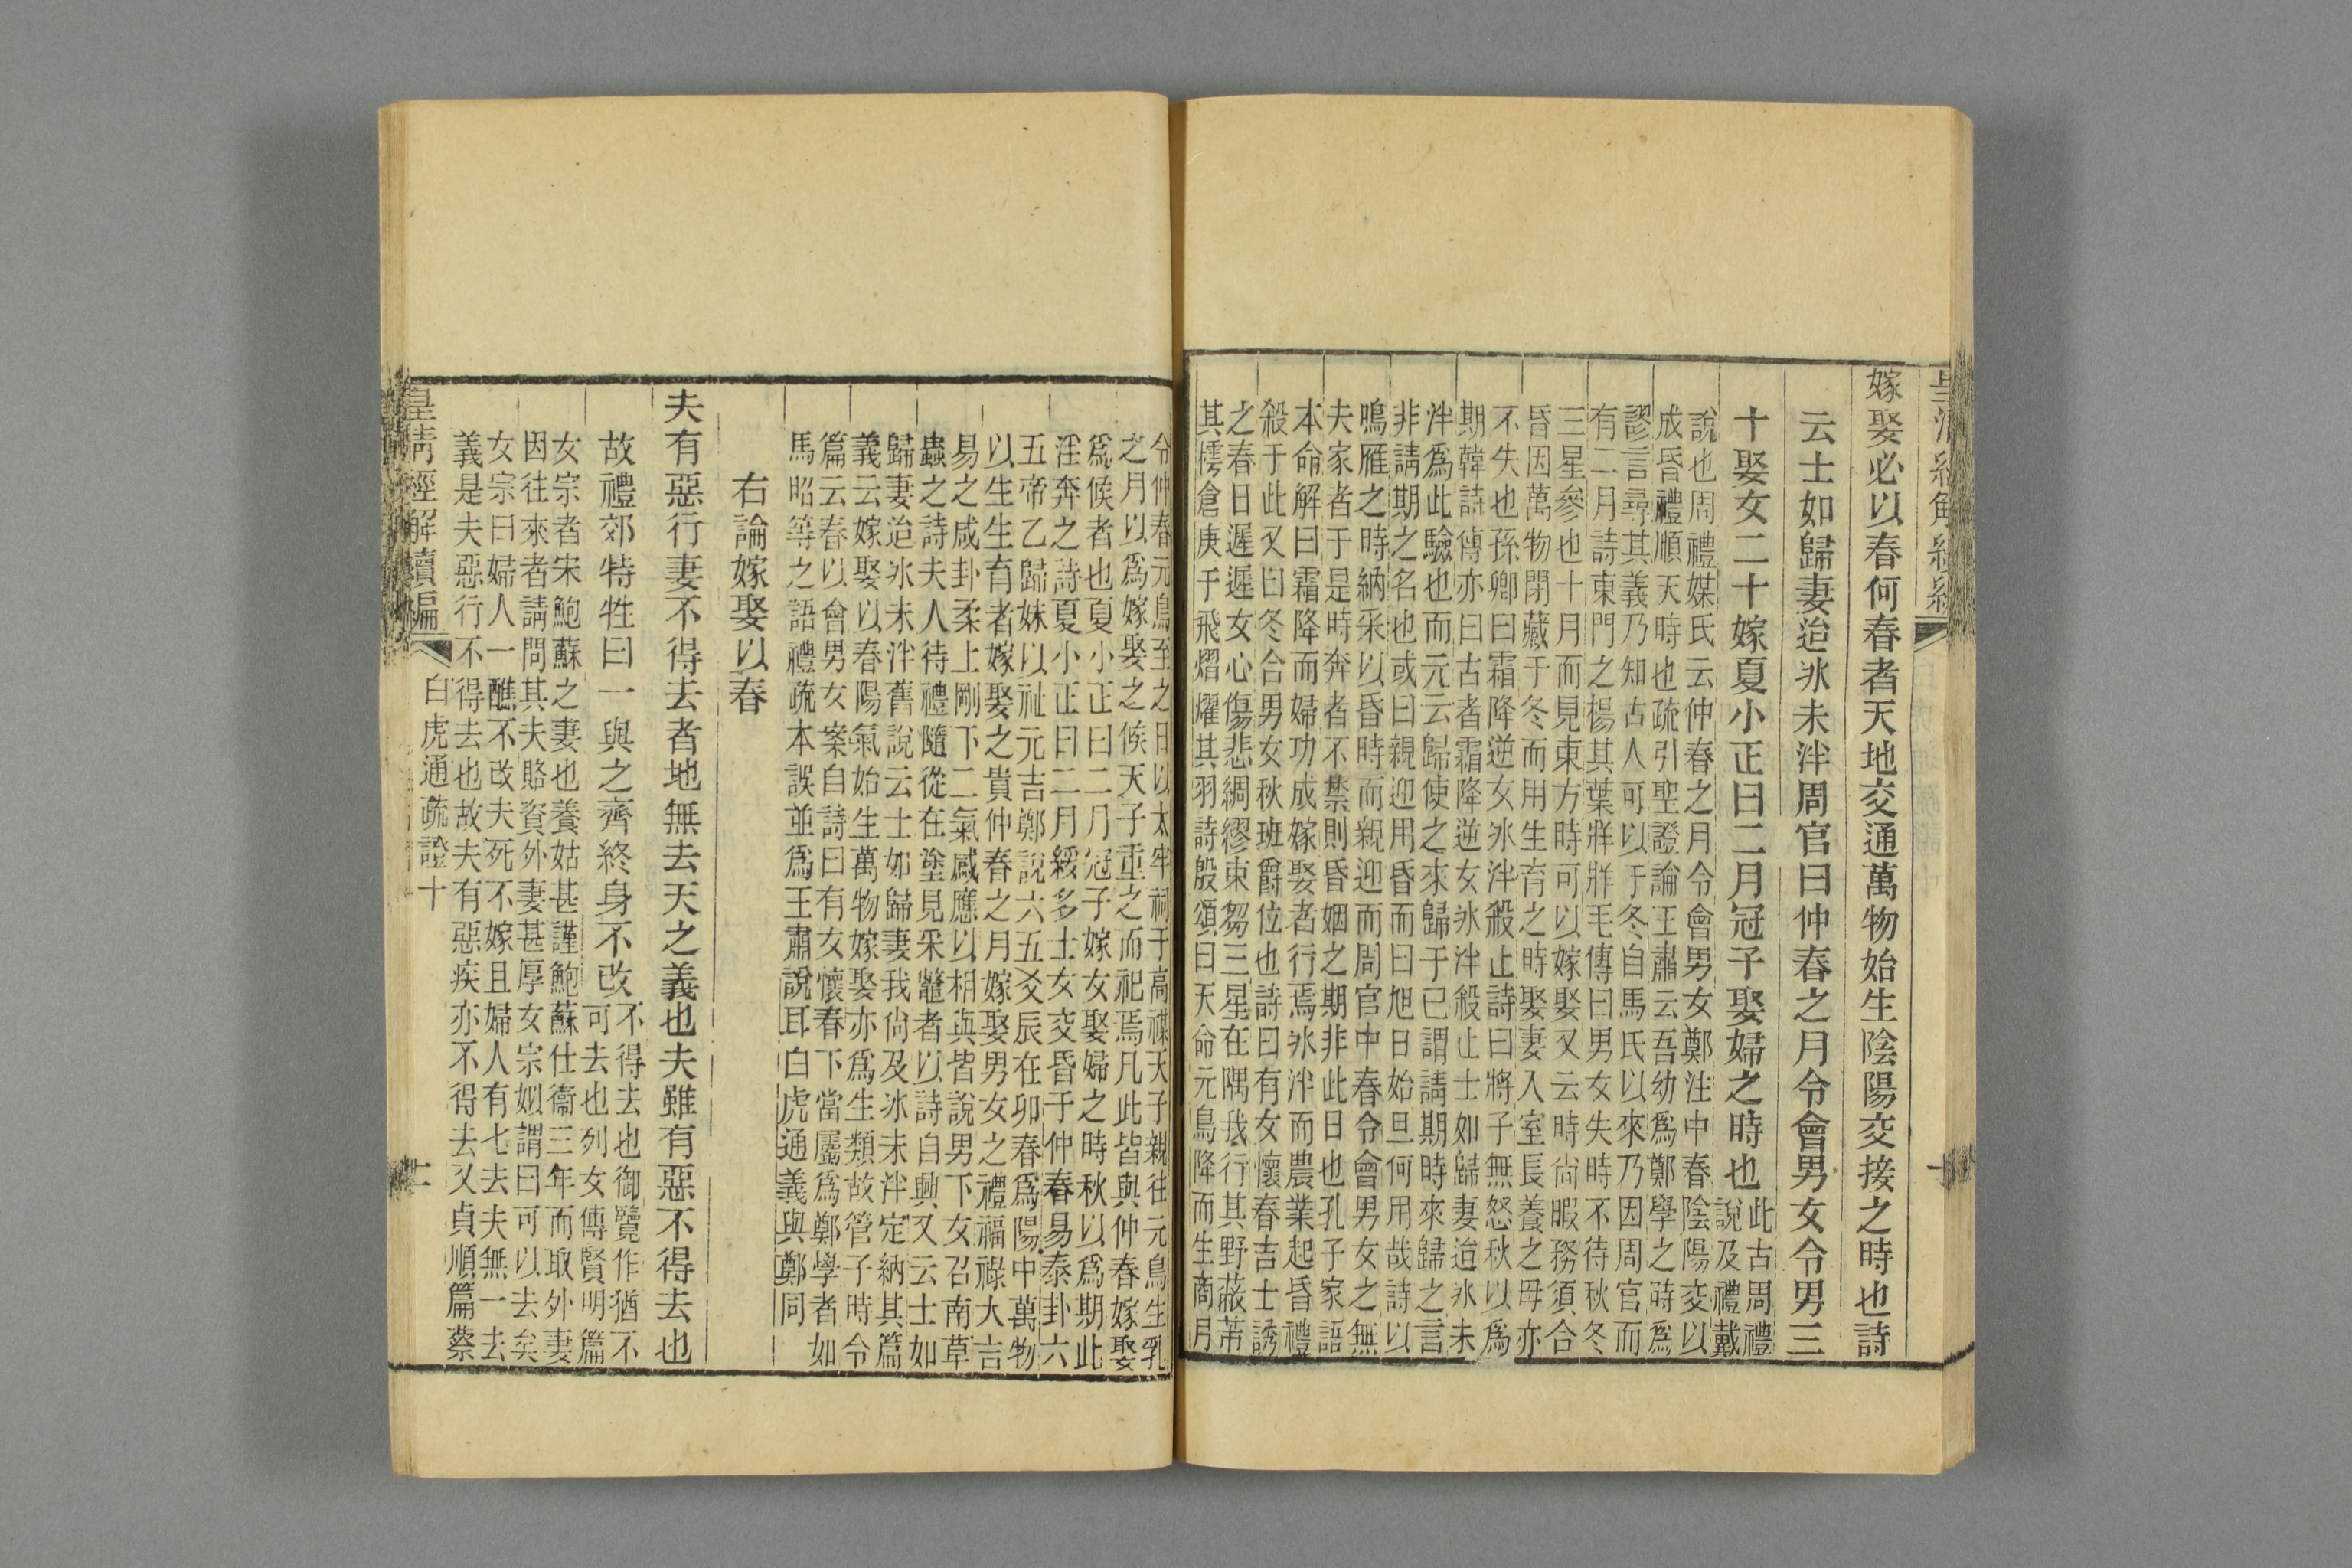 嫁娶必以春何春者天地交通萬物始生陰陽交接之時也詩
云士如歸妻迨冰未泮周官曰仲春之月令會男女令男三
十娶女二十嫁夏小正曰二月冠子娶婦之時也
此古周禮
說及禮戴
說也周禮媒氏云仲春之月令會男女鄭注中春陰陽交以
成昏禮順天時也疏引聖證論王肅云吾幼爲鄭學之時爲
謬言尋其義乃知古人可以于冬自馬氏以來乃因周官而
有二月詩東門之楊其葉牂牂毛傳曰男女失時不待秋冬
三星參也十月而見東方時可以嫁娶又云時尙暇務須合
昏因萬物閉藏于冬而用生育之時娶妻入室長養之母亦
不失也孫卿曰霜降逆女冰泮殺止詩曰將子無怒秋以爲
期韓詩傳亦曰古者霜降逆女冰泮殺止士如歸妻迨冰未
泮爲此驗也而元云歸使之來歸于已謂請期時來歸之言
非請期之名也或曰親迎用昏而曰旭日始旦何用哉詩以
鳴雁之時納采以昏時而親迎而周官中春令會男女之無
夫家者于是時奔者不禁則昏姻之期非此日也孔子家語
本命解曰霜降而婦功成嫁娶者行焉冰泮而農業起昏禮
殺于此又曰冬合男女秋班爵位也詩曰有女懷春吉士誘
之春日遲遲女心傷悲綢繆束芻三星在隅我行其野蔽芾
其樗倉庚于飛熠燿其羽詩殷頌曰天命元鳥降而生商月
令仲春元鳥至之日以太牢祠于高禖天子親往元鳥生乳
之月以爲嫁娶之候天子重之而祀焉凡此皆與仲春嫁娶
爲候者也夏小正曰二月冠子嫁女娶婦之時秋以爲期此
淫奔之詩夏小正曰二月綏多士女交昏于仲春易泰卦六
五帝乙歸妹以祉元吉鄭說六五爻辰在卯春爲陽中萬物
以生生育者嫁娶之貴仲春之月嫁娶男女之禮福祿大吉
易之咸卦柔上剛下二氣感應以相與皆說男下女召南草
蟲之詩夫人待禮隨從在塗見采鼈者以詩自興又云士如
歸妻迨冰未泮舊說云士如歸妻我尙及冰未泮定納其篇
義云嫁娶以春陽氣始生萬物嫁娶亦爲生類故管子時令
篇云春以會男女案自詩曰有女懷春下當屬爲鄭學者如
馬昭等之語禮疏本誤並爲王肅說耳白虎通義與鄭同
右論嫁娶以春
夫有惡行妻不得去者地無去天之義也夫雖有惡不得去也
故禮郊特牲曰一與之齊終身不改
不得去也御覽作猶不
可去也列女傳賢明篇
女宗者宋鮑蘇之妻也養姑甚謹鮑蘇仕衞三年而取外妻
因往來者請問其夫賂資外妻甚厚女宗姒謂曰可以去矣
女宗曰婦人一醮不改夫死不嫁且婦人有七去夫無一去
義是夫惡行不得去也故夫有惡疾亦不得去又貞順篇蔡
皇淸經解續編 白虎通疏證十